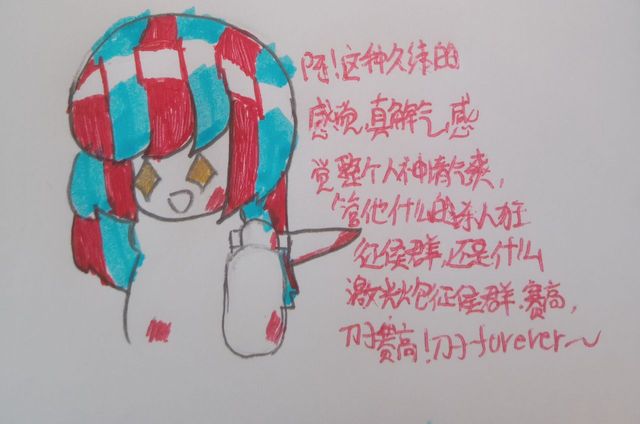 阿！这种久纬的
感觉，真解气，感
觉整个人神清气爽，
管他什么的杀人狂
征侯群，还是什么
激光炮征侯群．赛高，
刀子赛高！刀子forever～